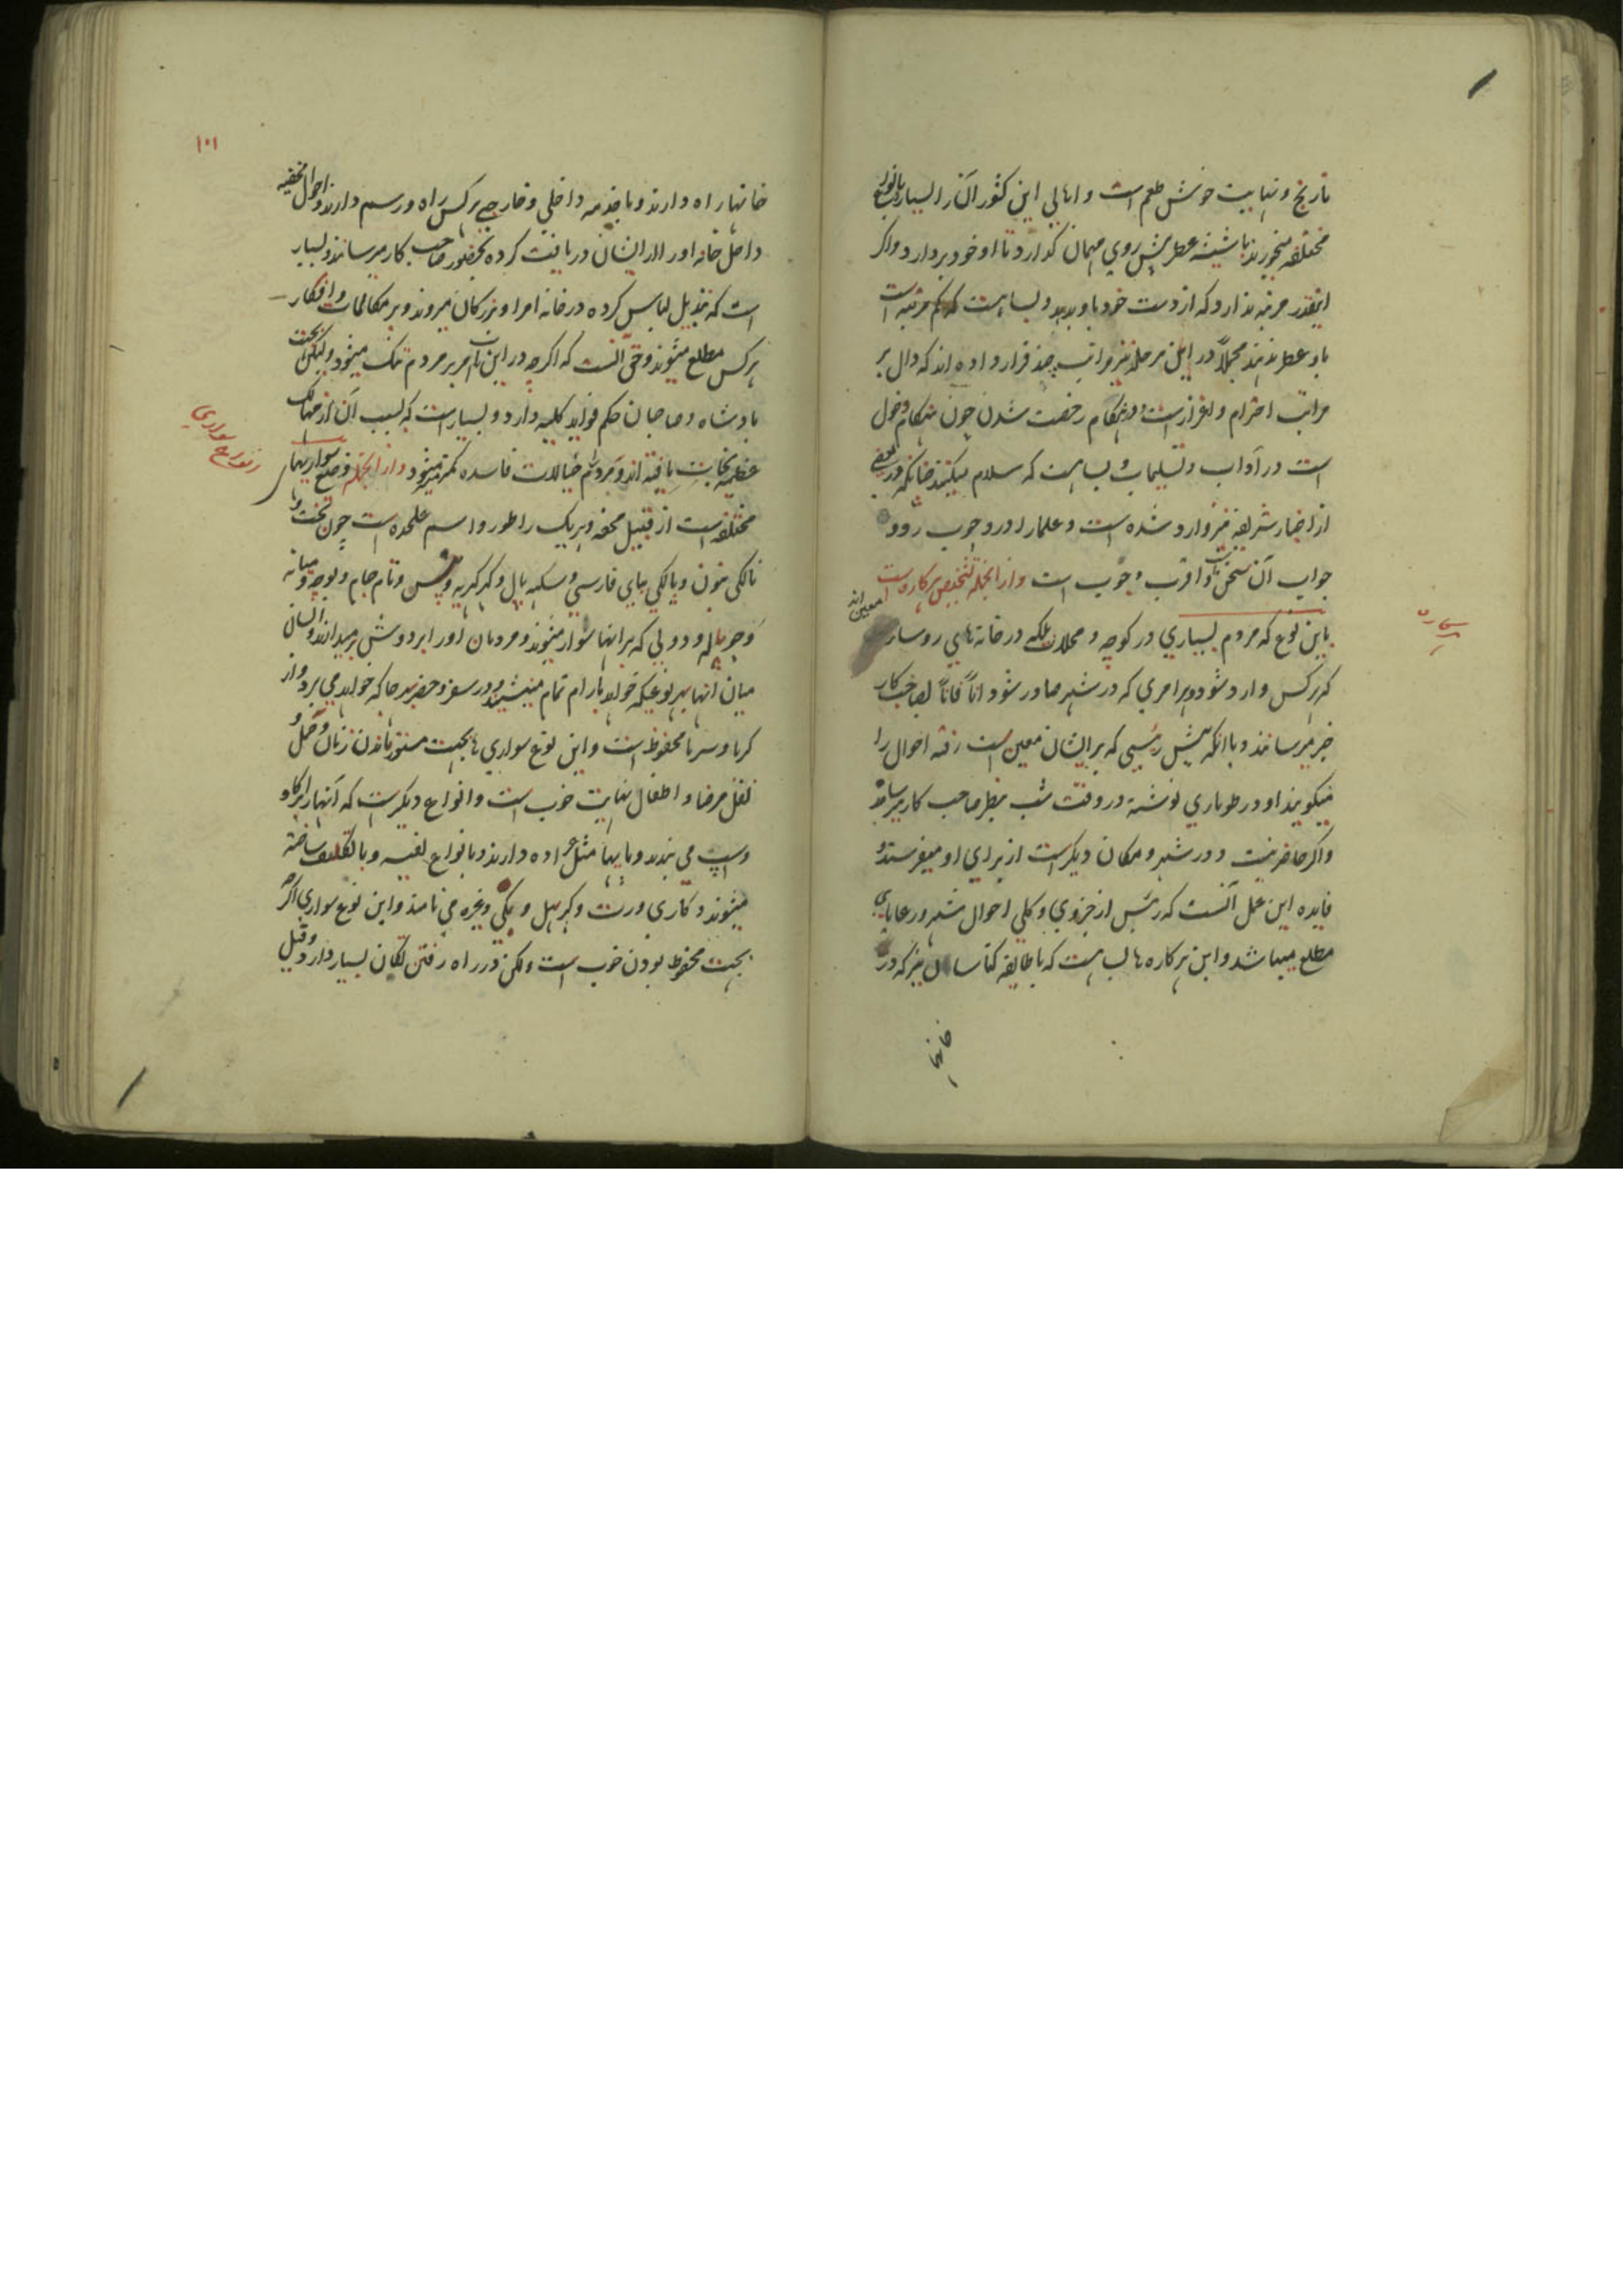 نارنج و نهایت خوش طعم است و اهالی این کشور آن را بسیار
مختلفه میخورند یا شیشه عطر پیش روی مهمان گذارد تا او خود بردارد و اگر
اینقدر مرتبه ندارد که از دست خود باو بدهد و بسا هست که کم مرتبه است
باو عطر ندهند مجملاً در این مرحله نیز مراتب چند قرار داده اند که دال بر
مراتب احترام و اعزاز است و در هنگام رخصت شدن چون هنگام دخول
است در آداب و تسلیمات و بسا هست که سلام میکنند چنانکه در بعضی
از اخبار شریفه نیز وارد شده است و علما را در وجوب ردو
جواب آن سخن است و اقرب وجوب است و از انجمله تشخیص هرکاره است
باین نوع که مردم بسیاری در کوچه و محلات بلکه در خانه های روسا معین اند
که هر کس وارد شود و هر امری که در شهر صادر شود اناً فاناً بصاحب کار
خبر میرسانند و یا انکه پیش رئیسی که بر ایشان معین است رفته احوال را
میگویند او در طوماری نوشته در وقت شب بنظر صاحب کار میرساند
و اگر حاضر نیست و در شهر و مکان دیگر است از برای او میفرستد و
فایده این عمل آنست که رئیس از جزوی و کلی احوال شهر و رعایا
مطلع میباشد و این هرکاره ها بسا هست که با طایفه کناسان نیز که در
خانها
هرکاره
۱۰۱
خانها راه دارند و با خدمه داخلی و خارجی هر کس راه و رسم دارند و احوال مخفیه
داخل خانه او را از ایشان دریافت کرده بحضور صاحب کار میرسانند و بسیار
است که تبدیل لباس کرده در خانه امرا و بزرگان میروند و بر مکالمات و افکار
هر کس مطلع میشوند و حق آنست که اگرچه در این باب امر بر مردم تنگ میشود ولیکن بجهت
پادشاه و صاحبان حکم فواید کلیه دارد و بسیار است که بسبب آن از مهالک
عظیمه نجات یافته اند و مردم را هم خیالات فاسده کمتر میشود و از انجمله وضع سواریهای
مختلفه است از قبیل محفه و هر یک را طور و اسم علیحده است چون تخت و
نالکی بتون و پالکی پای فارسی و سکهه پال و کهر کهریه و پنس و تام جام و بوچه و میانه
و چوپاله و دولی که بر انها سوار میشوند و مردمان او را بر دوش بر میدارند و انسان
میان انها بهر نوعیکه خواهد بارام تمام مینشیند و در سفر و حضر بهر جا که خواهد می برد و از
گرما و سرما محفوظ است و این نوع سواری ها بجهت مستور ماندن زنان و حمل و
نقل مرضا و اطفال نهایت خوب است و انواع دیگر است که آنها را بر گاو
و اسپ می بندند و پایها مثل عراده دارند و بانواع نفیسه و با تکلف ساخته
میشوند و گاری و رت و کهر بهل و بگی و غیره می نامند و این نوع سواری اگر
بجهت محفوظ بودن خوب است ولکن در راه رفتن تکان بسیار دارد و فیل
وضع سواری